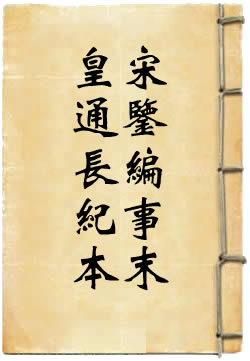 皇宋
通鑒
長編
紀事
本末